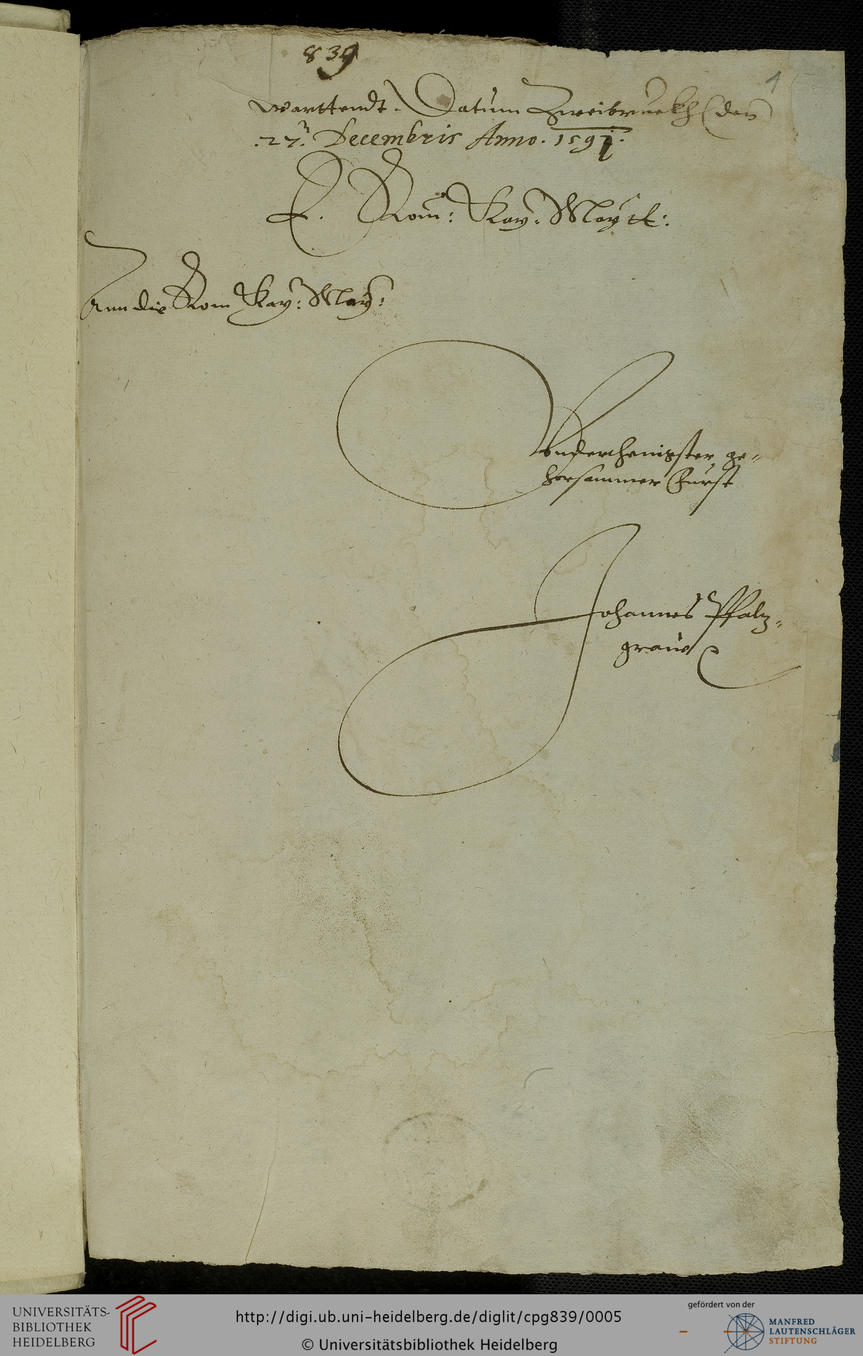 839
1
warttendt. Datum Zweibruckh den
.27. Decembris Anno. 1591.
E. Röm: Kay: Maytt:
Ann die Röm Kay: May:
Underthenigster ge-
horsammer Fürst
Johannes Pfaltz-
grave
UNIVERSITÄTS-
BIBLIOTHEK
HEIDELBERG
http://digi.ub.uni-heidelberg.de/diglit/cpg839/0005
© Universitätsbibliothek Heidelberg
gefördert von der
MANFRED
LAUTENSCHLÄGER
STIFTUNG